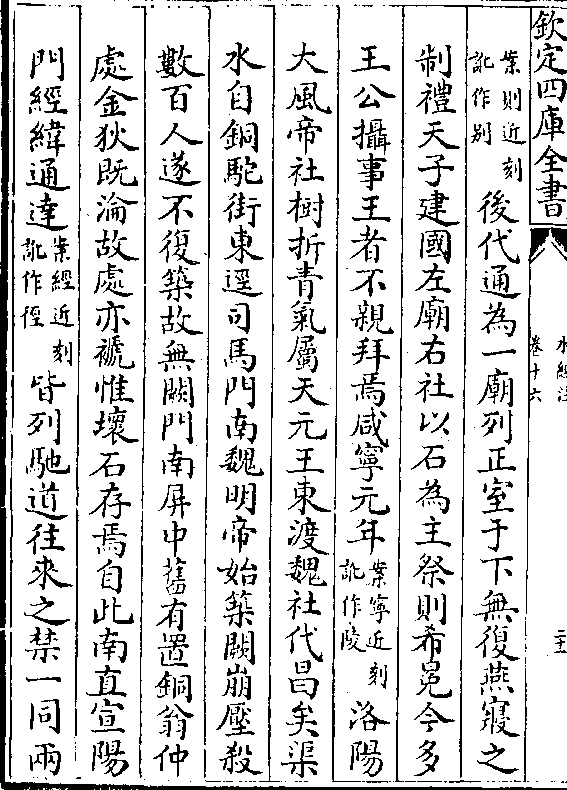 欽定四庫全書
水經注
卷十六
二十一
案則近刻訛作别後代通為一廟列正室于下無復燕寢之
制禮天子建國左廟右社以石為主祭則希冕今多
王公攝事王者不親拜焉咸寧元年案寧近刻訛作陵洛陽
大風帝社樹折青氣屬天元王東渡魏社代昌矣渠
水自銅駝街東逕司馬門南魏明帝始築闕崩壓殺
數百人遂不復築故無闕門南屏中舊有置銅翁仲
處金狄既淪故處亦褫惟壞石存焉自此南直宣陽
門經緯通達案經近刻訛作徑皆列馳道往來之禁一同兩